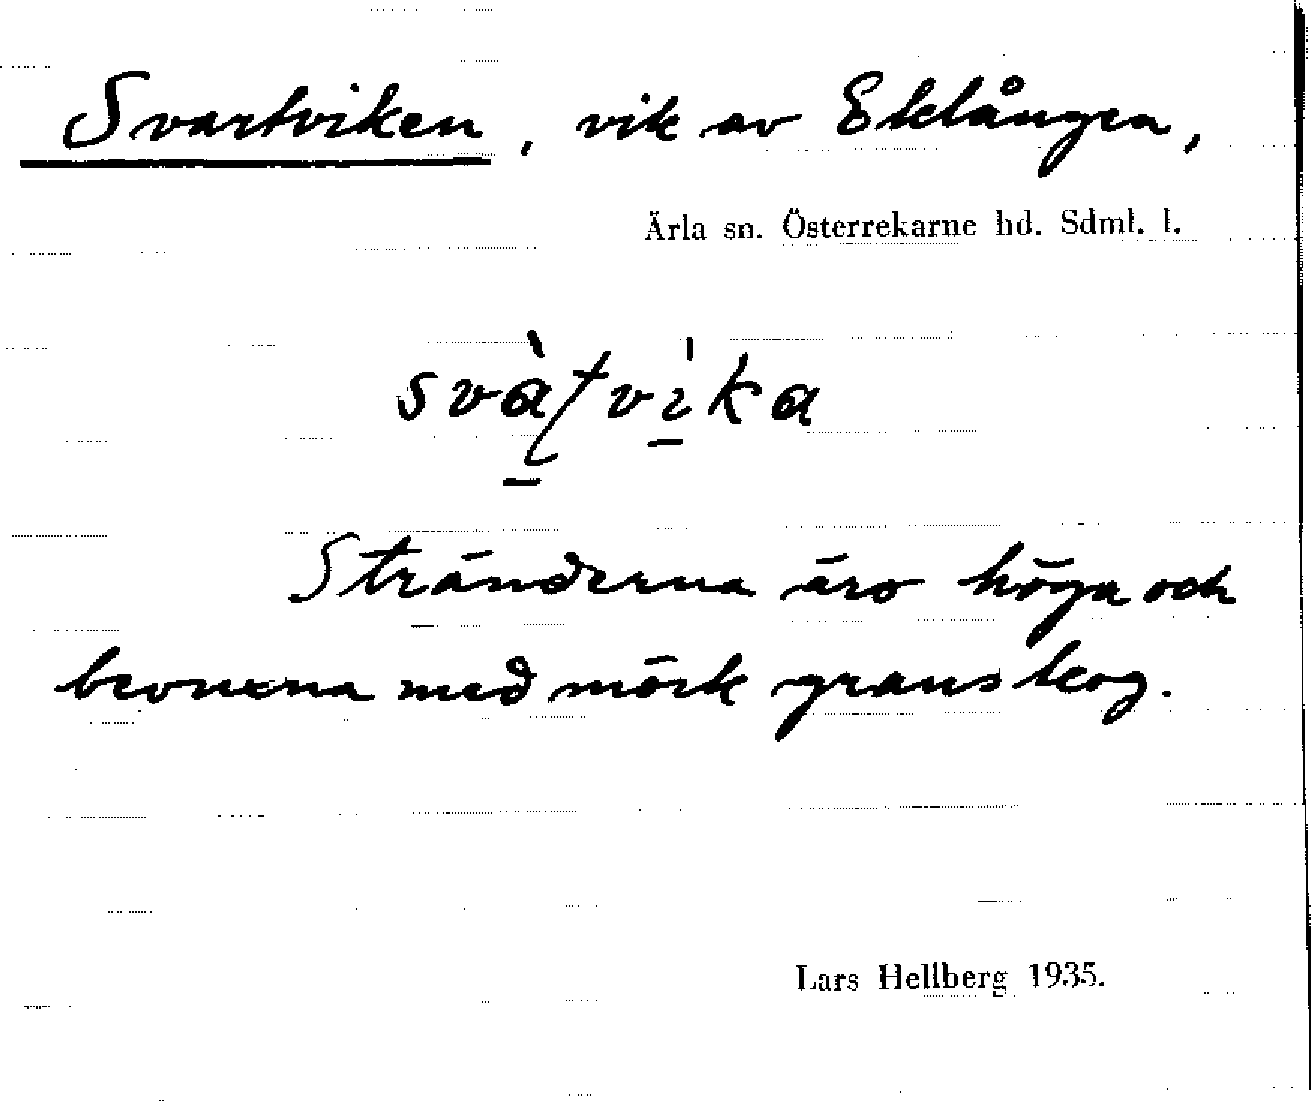 Svartviken, vik av Eklången,
Ärla sn. Österrekarne hd. Sdml. l.
svàʈvi̱ka
Stränderna äro höga och
bevuxna med mörk granskog.
Lars Hellberg 1935.